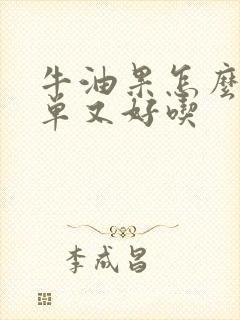 牛油果怎麼
单又好喫
李成昌